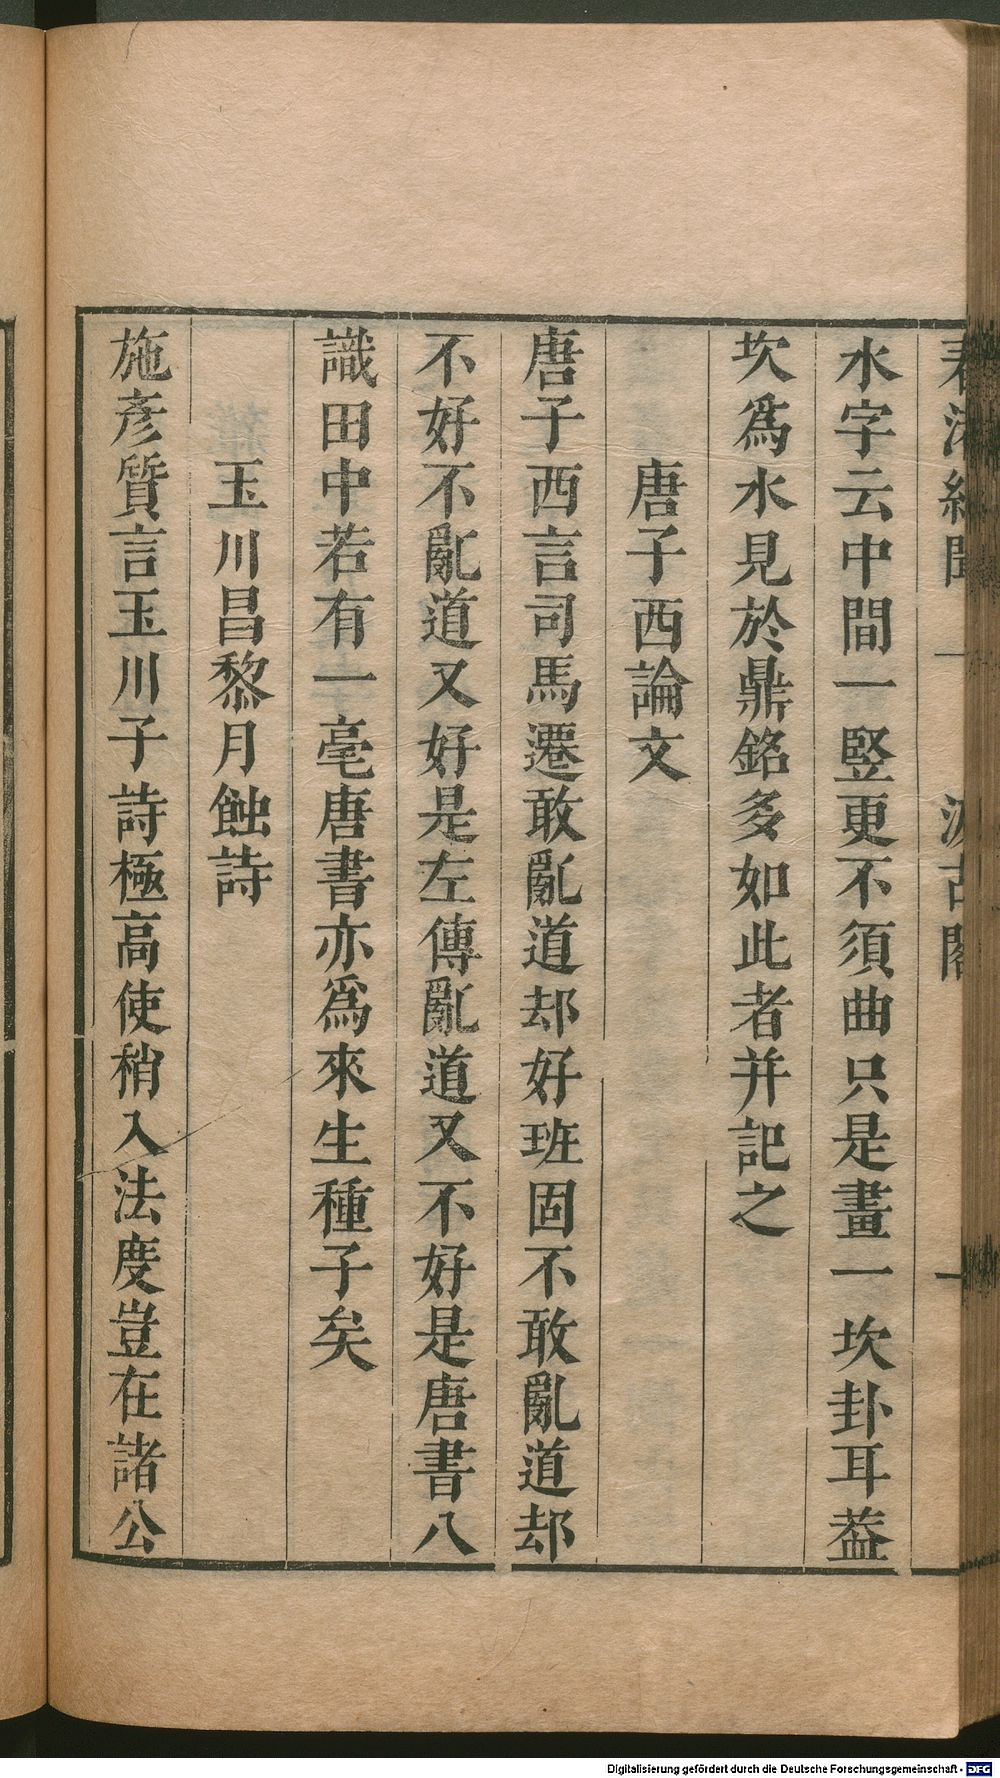 水字云中間一竪更不須曲只是畫一坎卦耳葢
坎爲水見於鼎銘多如此者并記之
唐子西論文
唐子西言司馬遷敢亂道却好班固不敢亂道却
不好不亂道又好是左傳亂道又不好是唐書八
識田中若有一毫唐書亦爲來生種子矣
玉川昌黎月蝕詩
施彥質言玉川子詩極高使稍入法度豈在諸公
Digitalisierung gefördert durch die Deutsche Forschungsgemeinschaft - DFG